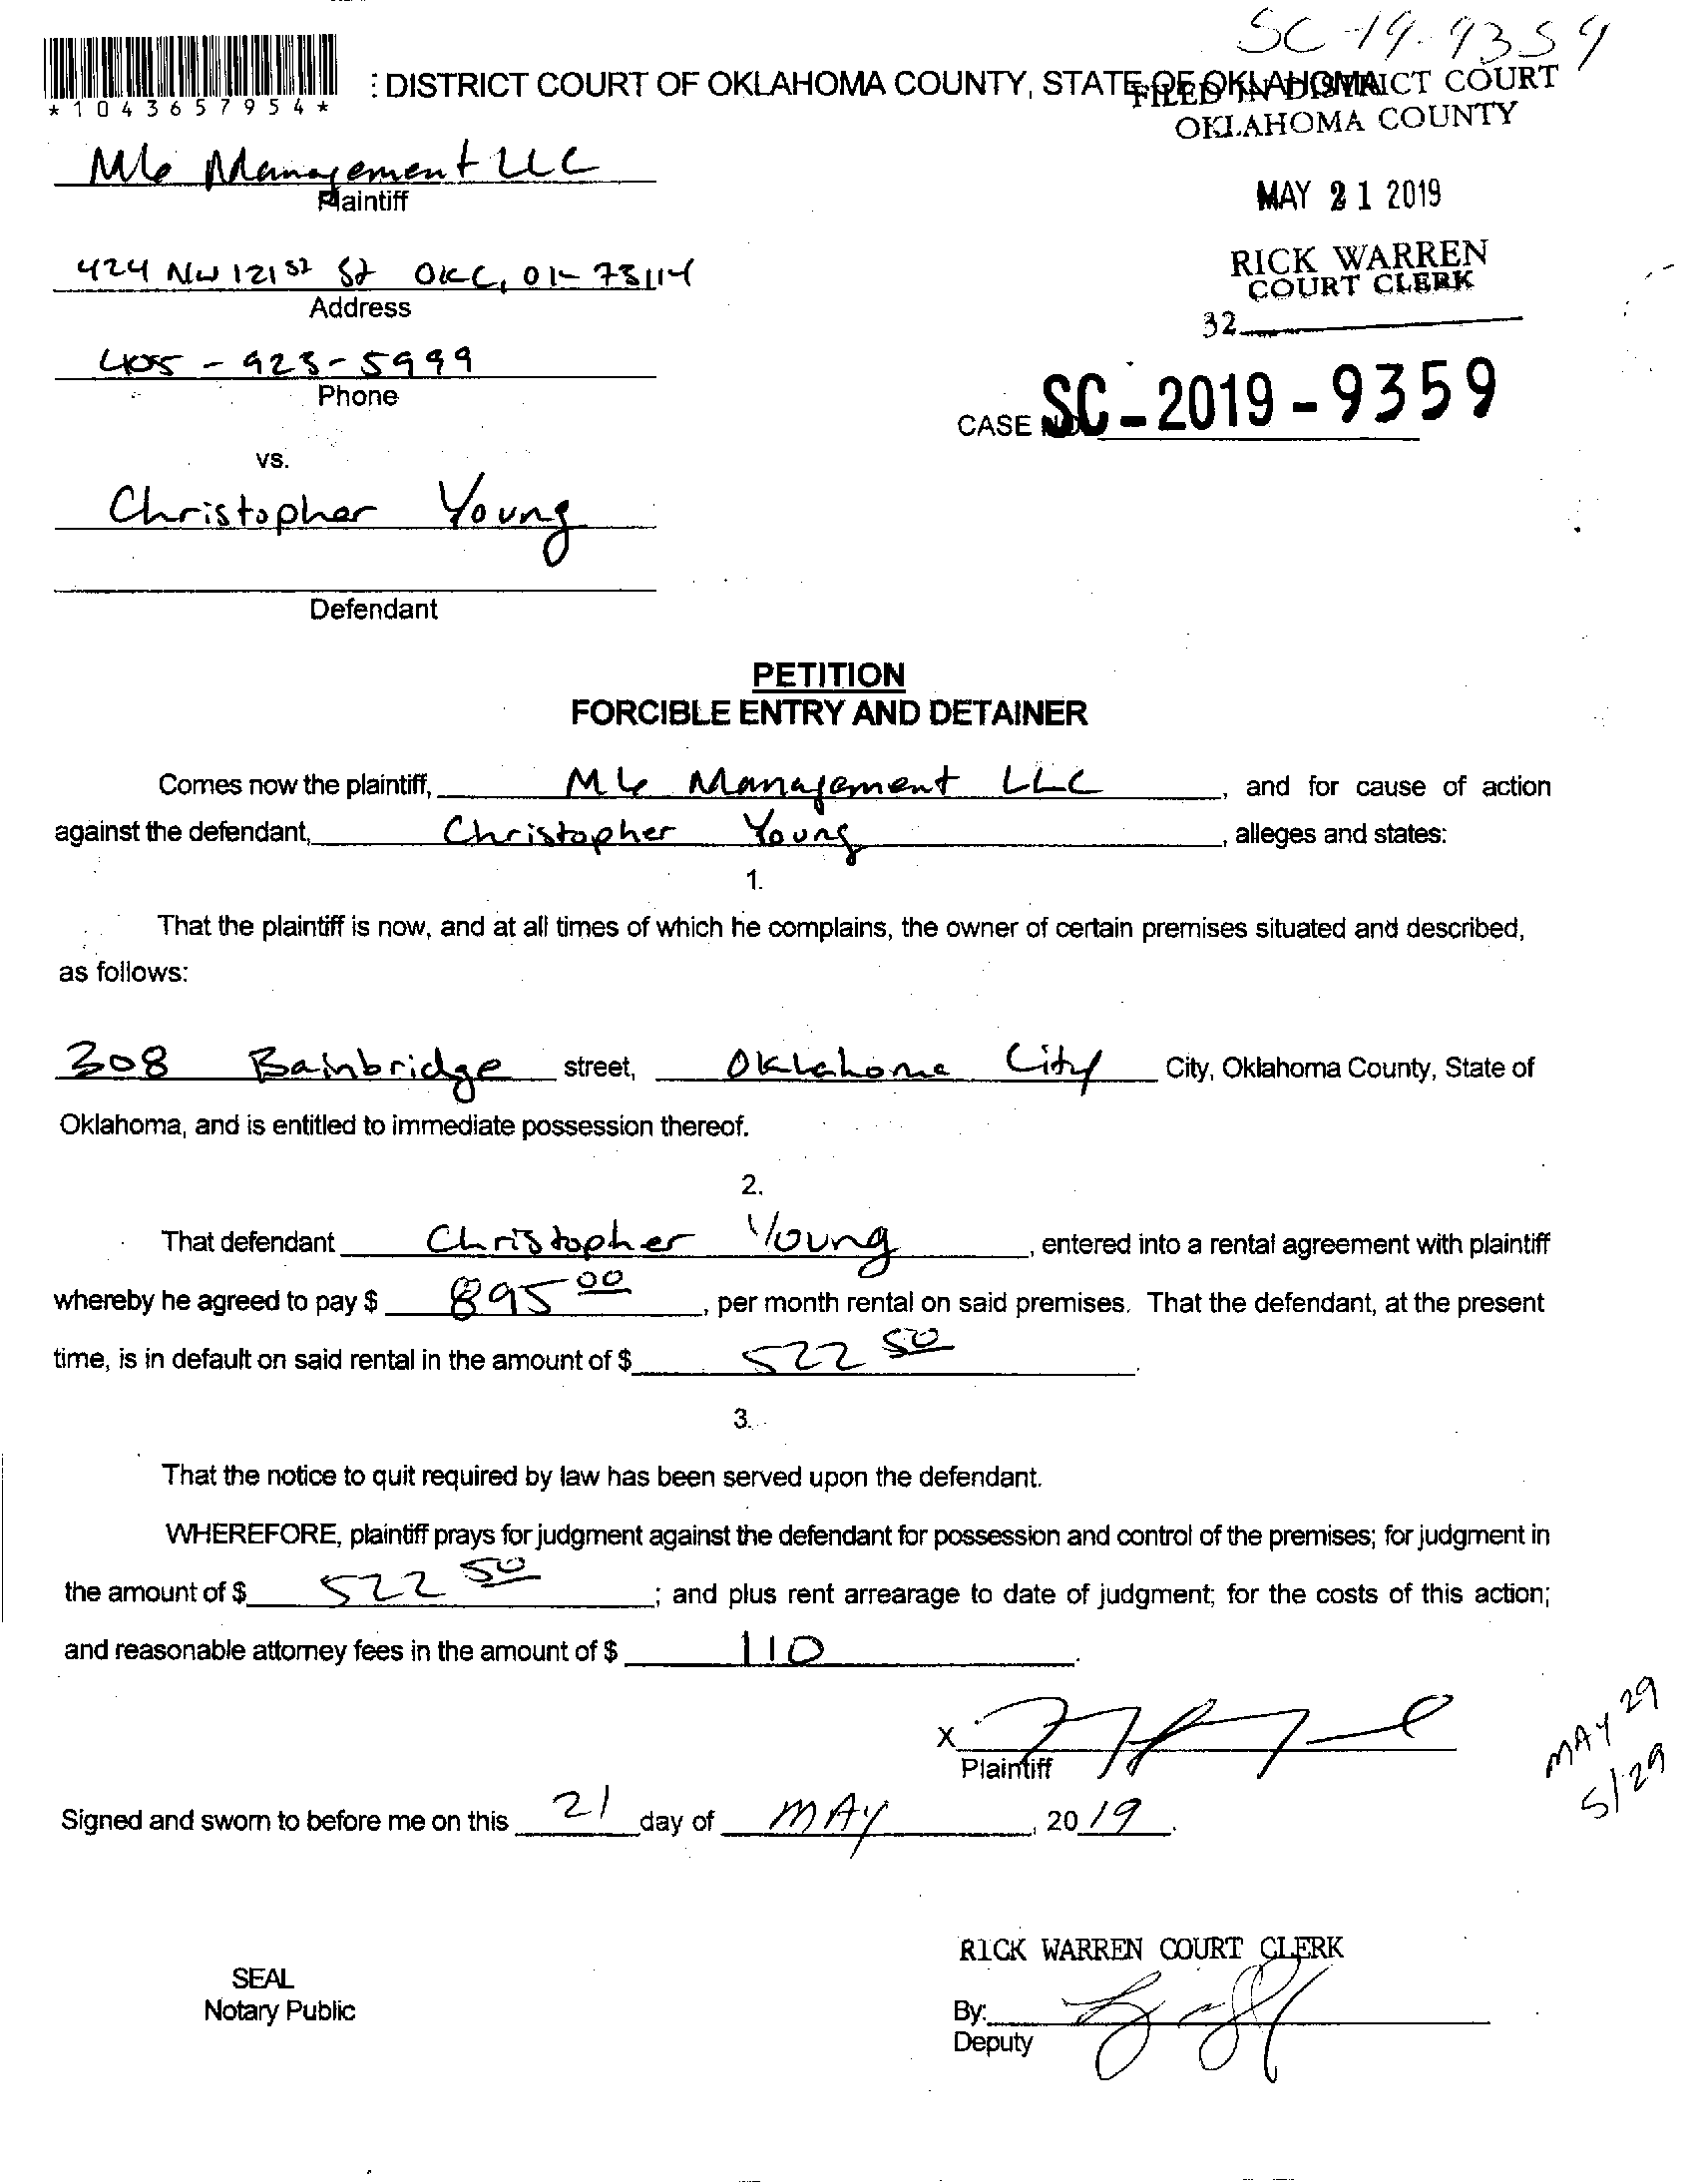 SC-19-9359
*1043657954*
: DISTRICT COURT OF OKLAHOMA COUNTY, STATE OF OKLAHOMA
FILED IN DISTRICT COURT
OKLAHOMA COUNTY
Mle Management LLC
Plaintiff
MAY 21 2019
424 NW 121st St OKC, OK 73114
Address
RICK WARREN
COURT CLERK
32
405-923-5999
Phone
CASE NO. SC-2019-9359
vs.
Christopher Young
Defendant
PETITION
FORCIBLE ENTRY AND DETAINER
Comes now the plaintiff, Mle Management LLC, and for cause of action
against the defendant, Christopher Young, alleges and states:
1.
That the plaintiff is now, and at all times of which he complains, the owner of certain premises situated and described,
as follows:
308 Bainbridge street, Oklahoma City City, Oklahoma County, State of
Oklahoma, and is entitled to immediate possession thereof.
2.
That defendant Christopher Young, entered into a rental agreement with plaintiff
whereby he agreed to pay $ 895 00, per month rental on said premises. That the defendant, at the present
time, is in default on said rental in the amount of $ 522 50.
3.
That the notice to quit required by law has been served upon the defendant.
WHEREFORE, plaintiff prays for judgment against the defendant for possession and control of the premises; for judgment in
the amount of $ 522 50; and plus rent arrearage to date of judgment; for the costs of this action;
and reasonable attorney fees in the amount of $ 110.
X
Plaintiff
MAY 29
5/29
Signed and sworn to before me on this 21 day of MAY, 2019.
RICK WARREN COURT CLERK
SEAL
Notary Public
By:
Deputy